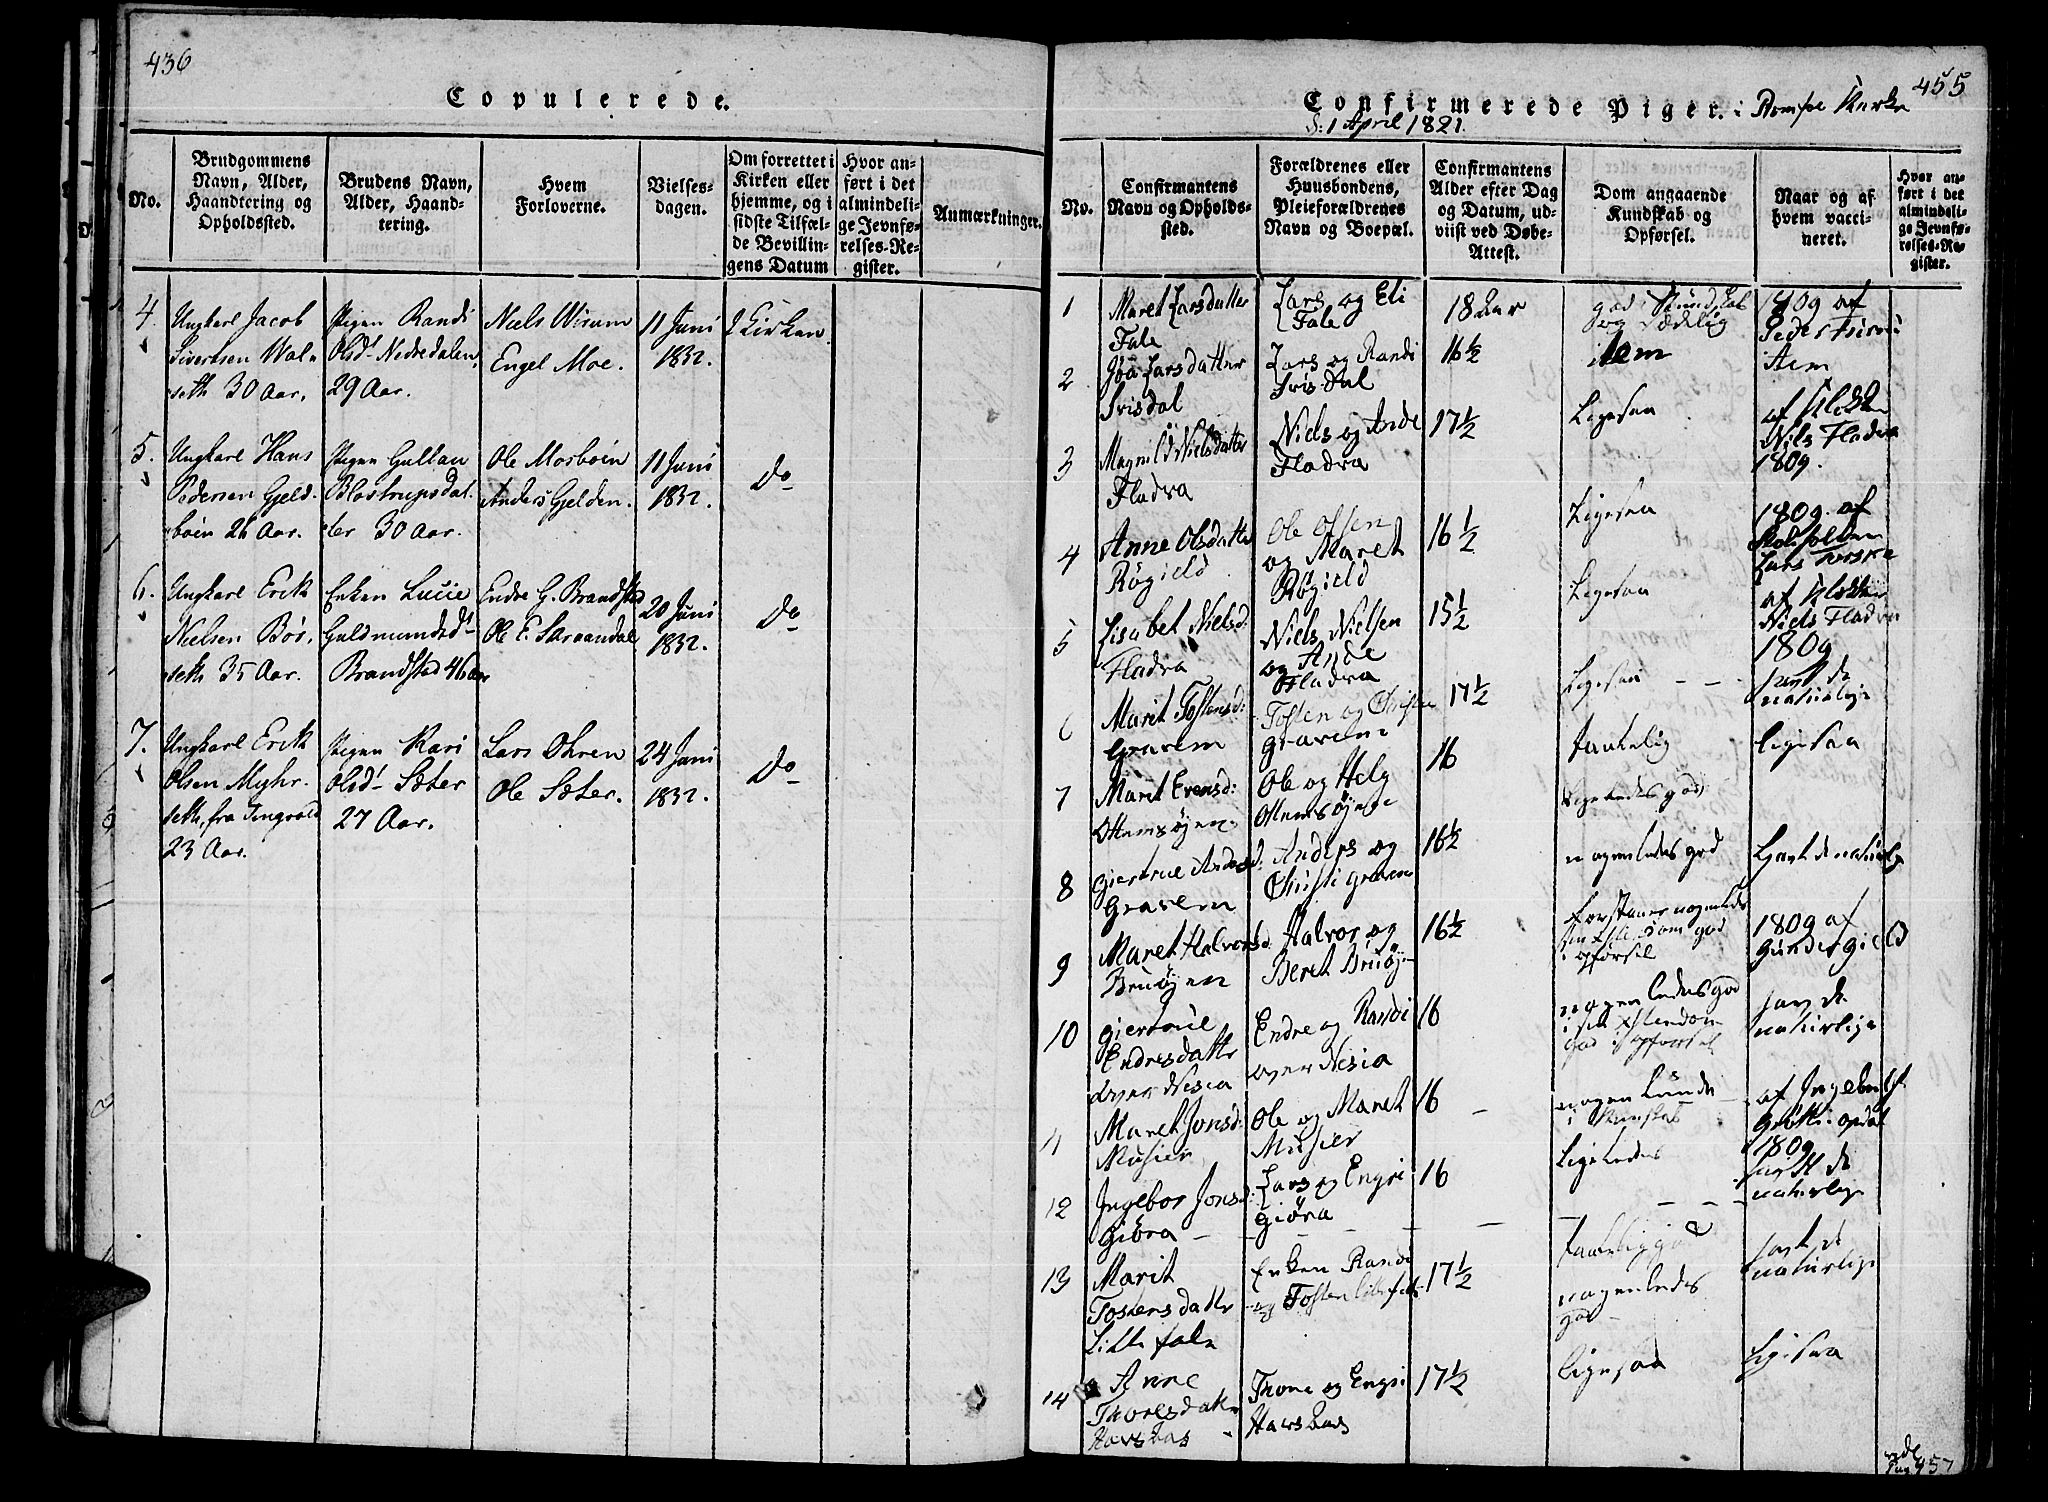 436
Copulerede.
No.
Brudgommens
Navn, Alder,
Haandtering og
Opholdssted.
Brudens Navn,
Alder, Haand-
tering.
Hvem
Forloverne.
Vielses-
dagen.
Om forrettet i
Kirken eller
hjemme, og i
sidste Tilfæl-
de Bevillin-
gens Datum
Hvor an-
ført i det
almindeli-
ge Jevnfø-
relses-Re-
gister.
Anmærkninger.
4.
Ungkarl Jacob
Sivertsen Wal-
seth 30 Aar.
Pigen Randi
Olsd. Nedredalen,
29 Aar.
Niels Wirum
Engel Moe.
11 Juni
1832.
I Kirken
5.
Ungkarl Hans
Pedersen Gjeld-
böin 26 Aar.
Pigen Gullan
Blostrupsdat-
ter 30 Aar.
Ole Morböin
Anders Gjelden.
11 Juni
1832.
Do
6.
Ungkarl Erick
Nielsen Bör-
seth 35 Aar.
Enken Lucie
Guldmundsd.
Brandstad 46 aar
Endre G. Brandstad
Ole E.
20 Juni
1832.
Do
7.
Ungkarl Erick
Olsen Myhr-
seth, fra Tingvold
23 Aar.
Pigen Kari
Olsd. Sæter
27 Aar.
Lars Ohren
Ole Sæter.
24 Juni
1832.
Do
455
Confirmerede Piger. i Romfoe Kirke
d: 1 April 1821.
No.
Confirmantens
Navn og Opholds-
sted.
Forældrenes eller
Huusbondens,
Pleieforældrenes
Navn og Boepæl.
Confirmantens
Alder efter Dag
og Datum, ud-
viist ved Døbe-
Attest.
Dom angaaende
Kundskab og
Opførsel.
Naar og af
hvem vacci-
neret.
Hvor an-
ført i det
almindeli-
ge Jevnfø-
relses-Re-
gister.
1
Maret Larsdatter
Fale
Lars og Eli
Fale
18 Aar
god Kundskab
og Sædelig
1809 af
Peder
2
Larsdatter
Svisdal
Lars og Randi
Svisdal
16 1/2
item
Item
3
Magnild Nielsdatter
Fladva
Niels og Ande
Fladva
17 1/2
Ligesaa
af Klokker
Nils Fladva
1809.
4
Anne Olsdatter
Røgield
Ole Olsen
og Maret
Røgield
16 1/2
Ligesaa
1809. af
Skoleholder
Lars
5
Lisabet Nielsd:
Fladva
Niels Nielsen
og Ande
Fladva
15 1/2
Ligesaa
af Klokker
Niels Fladva
1809
6
Marit Tostensd:
Gravem
Tosten og Christi
Gravem
17 1/2
Ligesaa
havt de
naturlige
7
Marit Evensd:
Ottemsøjen
Ole og Helg
Ottemsøjen
16
Taalelig
nogenledes god
ligesaa
8
Giertrue Andersd:
Gravem
Anders og
Christi Gravem
16 1/2
nogenledes god
havt de naturlige
9
Maret Halvorsd:
Bruøjen
Halvor og
Beret Bruøjen
16 1/2
forstaaer nogenledes
sin xstendom god
i opførsel
1809 af
Gunder Gield
10
Giertrue
Endresdatter
over Nesia
Endre og Randi
over Nesia
16
nogenledes god
i sin xstendom
god i opførsel
hav de
naturlige
11
Maret Jonsd:
Musier
Ole og Maret
Musier
16
nogen kunde
i Kunskab
af Ingebrigt
Opdal
1809
12
Ingebor Jonsd:
Giöra
Lars og Engri
Giöra
16
Ligeledes
havt de
naturlige
13
Marit
Tostensdatter
Lille fale
Enken Randi
og Tosten Lilefale
17 1/2
Taalelig god
nogenledes
god
havt de
naturlige
14
Anne
Thoresdatter
Hovsbas
Thore og Engri
17 1/2
ligesaa
Ligesaa
vide
Pag 457